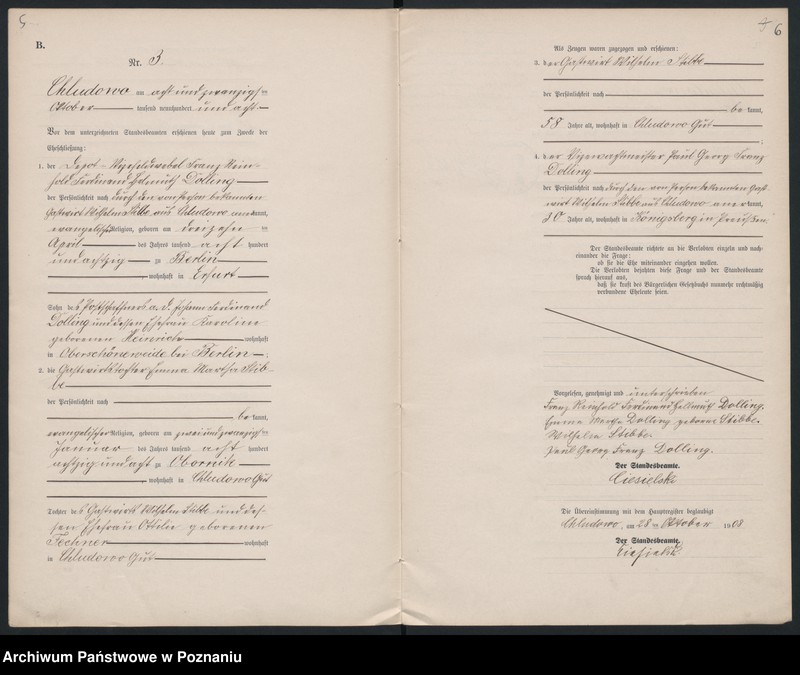 B.
Nr. 3.
Chludowo am acht und zwanzigsten
Oktober tausend neunhundert und acht
Vor dem unterzeichneten Standesbeamten erschienen heute zum Zwecke der
Eheschließung:
1. der Depot-Vizefeldwebel Franz Rein-
hold Ferdinand Helmuth Dolling
der Persönlichkeit nach durch den von Person bekannten
Gastwirt Wilhelm Stibbe aus Chludowo kannt,
evangelischer Religion, geboren am dreizehn ten
April des Jahres tausend acht hundert
und achtzig zu Berlin
, wohnhaft in Erfurt
Sohn des Postschaffners a. D. Johann Ferdinand
Dolling und dessen Ehefrau Karoline
geborenen Heinrich wohnhaft
in Oberschöneweide bei Berlin ;
2. die Gastwirtstochter Emma Martha Stib-
be
der Persönlichkeit nach
be kannt,
evangelischer Religion, geboren am zwei und zwanzigsten
Januar des Jahres tausend acht hundert
achtzig und acht zu Obornik
, wohnhaft in Chludowo Gut
Tochter des Gastwirts Wilhelm Stibbe und des-
sen Ehefrau Ottilie geborenen
Fechner wohnhaft
in Chludowo Gut
6
Als Zeugen waren zugezogen und erschienen:
3. der Gastwirt Wilhelm Stibbe
der Persönlichkeit nach
be kannt,
58 Jahre alt, wohnhaft in Chludowo Gut
;
4. der Vizewachtmeister Paul Georg Franz
Dolling
der Persönlichkeit nach durch den von Person bekannten Gast-
wirt Wilhelm Stibbe aus Chludowo anerkannt,
30 Jahre alt, wohnhaft in Königsberg in Preußen.
Der Standesbeamte richtete an die Verlobten einzeln und nach-
einander die Frage:
ob sie die Ehe miteinander eingehen wollen.
Die Verlobten bejahten diese Frage und der Standesbeamte
sprach hierauf aus,
daß sie kraft des Bürgerlichen Gesetzbuchs nunmehr rechtmäßig
verbundene Eheleute seien.
Vorgelesen, genehmigt und unterschrieben
Franz Reinhold Ferdinand Hellmuth Dolling.
Emma Martha Dolling geborene Stibbe.
Wilhelm Stibbe.
Paul Georg Franz Dolling.
Der Standesbeamte.
Ciesielski
Die Übereinstimmung mit dem Hauptregister beglaubigt
Chludowo, am 28 ten Oktober 1908
Der Standesbeamte.
Ciesielski
Archiwum Państwowe w Poznaniu